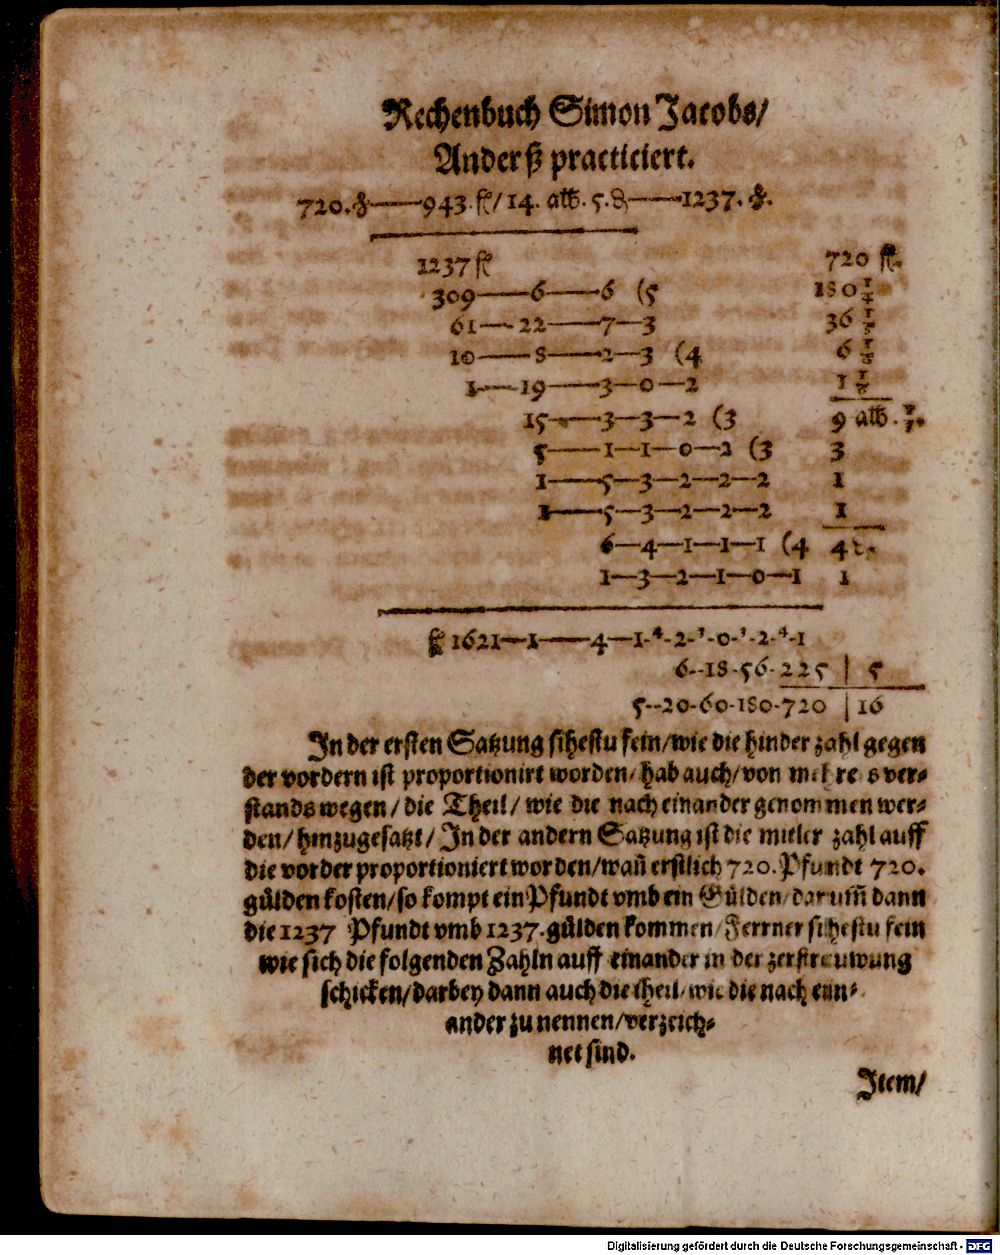 Rechenbuch Simon Jacobs/
Anderß practiciert.
720. ℔——943. fl/14. alb. 5. ₰——1237. ℔.
1237 fl 720 fl.
309——6——6 (5 180 1/4
61—-22——7—3 36 1/5
10——8——2—3 (4 6 1/6
1——19——3—0—2 1 1/6
15——3—3—2 (3 9 alb.
5——1—1—0—2 (3 3
1——5—3—2—2—2 1
1——5—3—2—2—2 1
6—4—1—1—1 (4 4
1—3—2—1—0—1 1
fl 1621—1——4—1-⁴-2-³-0-³-2-⁴-1
6--18-56-225 | 5
5--20-60-180-720 | 16
In der ersten Satzung sihestu fein/wie die hinder zahl gegen
der vordern ist proportionirt worden/hab auch/von mehres ver-
stands wegen/die Theil/wie die nach einander genommen wer-
den/hinzugesatzt/In der andern Satzung ist die mitler zahl auff
die vorder proportioniert worden/wañ erstlich 720. Pfundt 720.
gülden kosten/so kompt ein Pfundt vmb ein Gülden/darum̃ dann
die 1237 Pfundt vmb 1237. gülden kommen/Ferrner sihestu fein
wie sich die folgenden Zahln auff einander in der zerstreuwung
schicken/darbey dann auch die theil/wie die nach ein-
ander zu nennen/verzeich-
net sind.
Item/
Digitalisierung gefördert durch die Deutsche Forschungsgemeinschaft - DFG